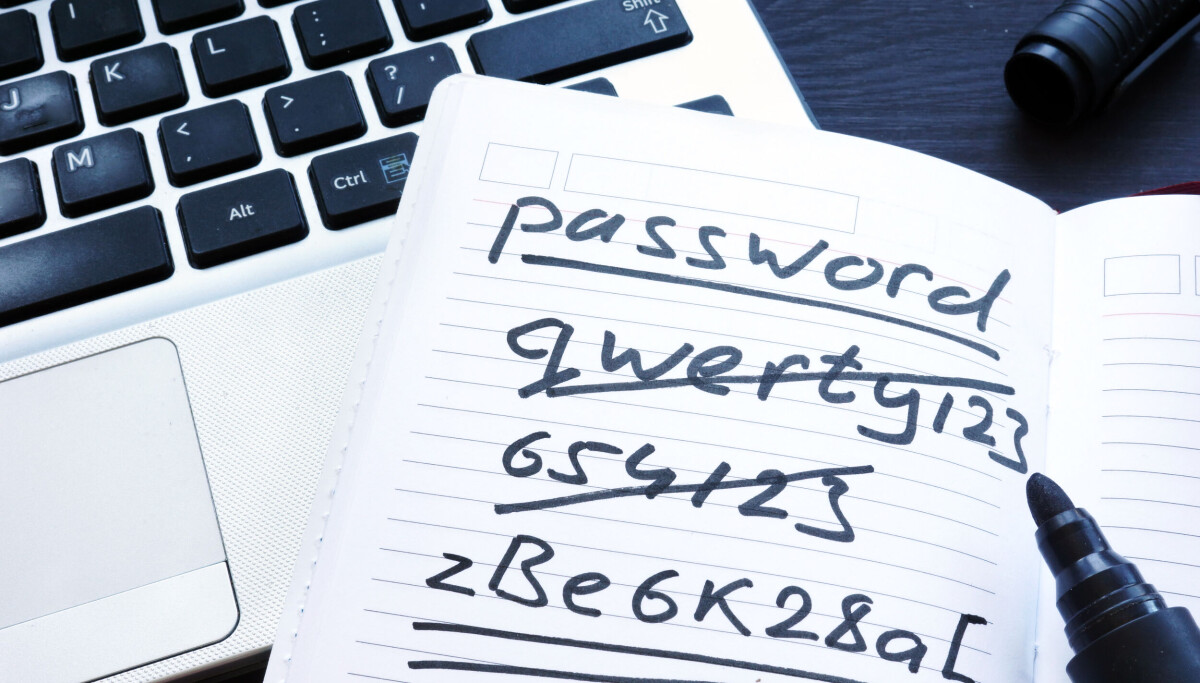 I
: ;
Shift
J
K
L
> .
? /
M
< ,
Alt
Ctrl
password
qwerty123
654123
zBe6K28a[